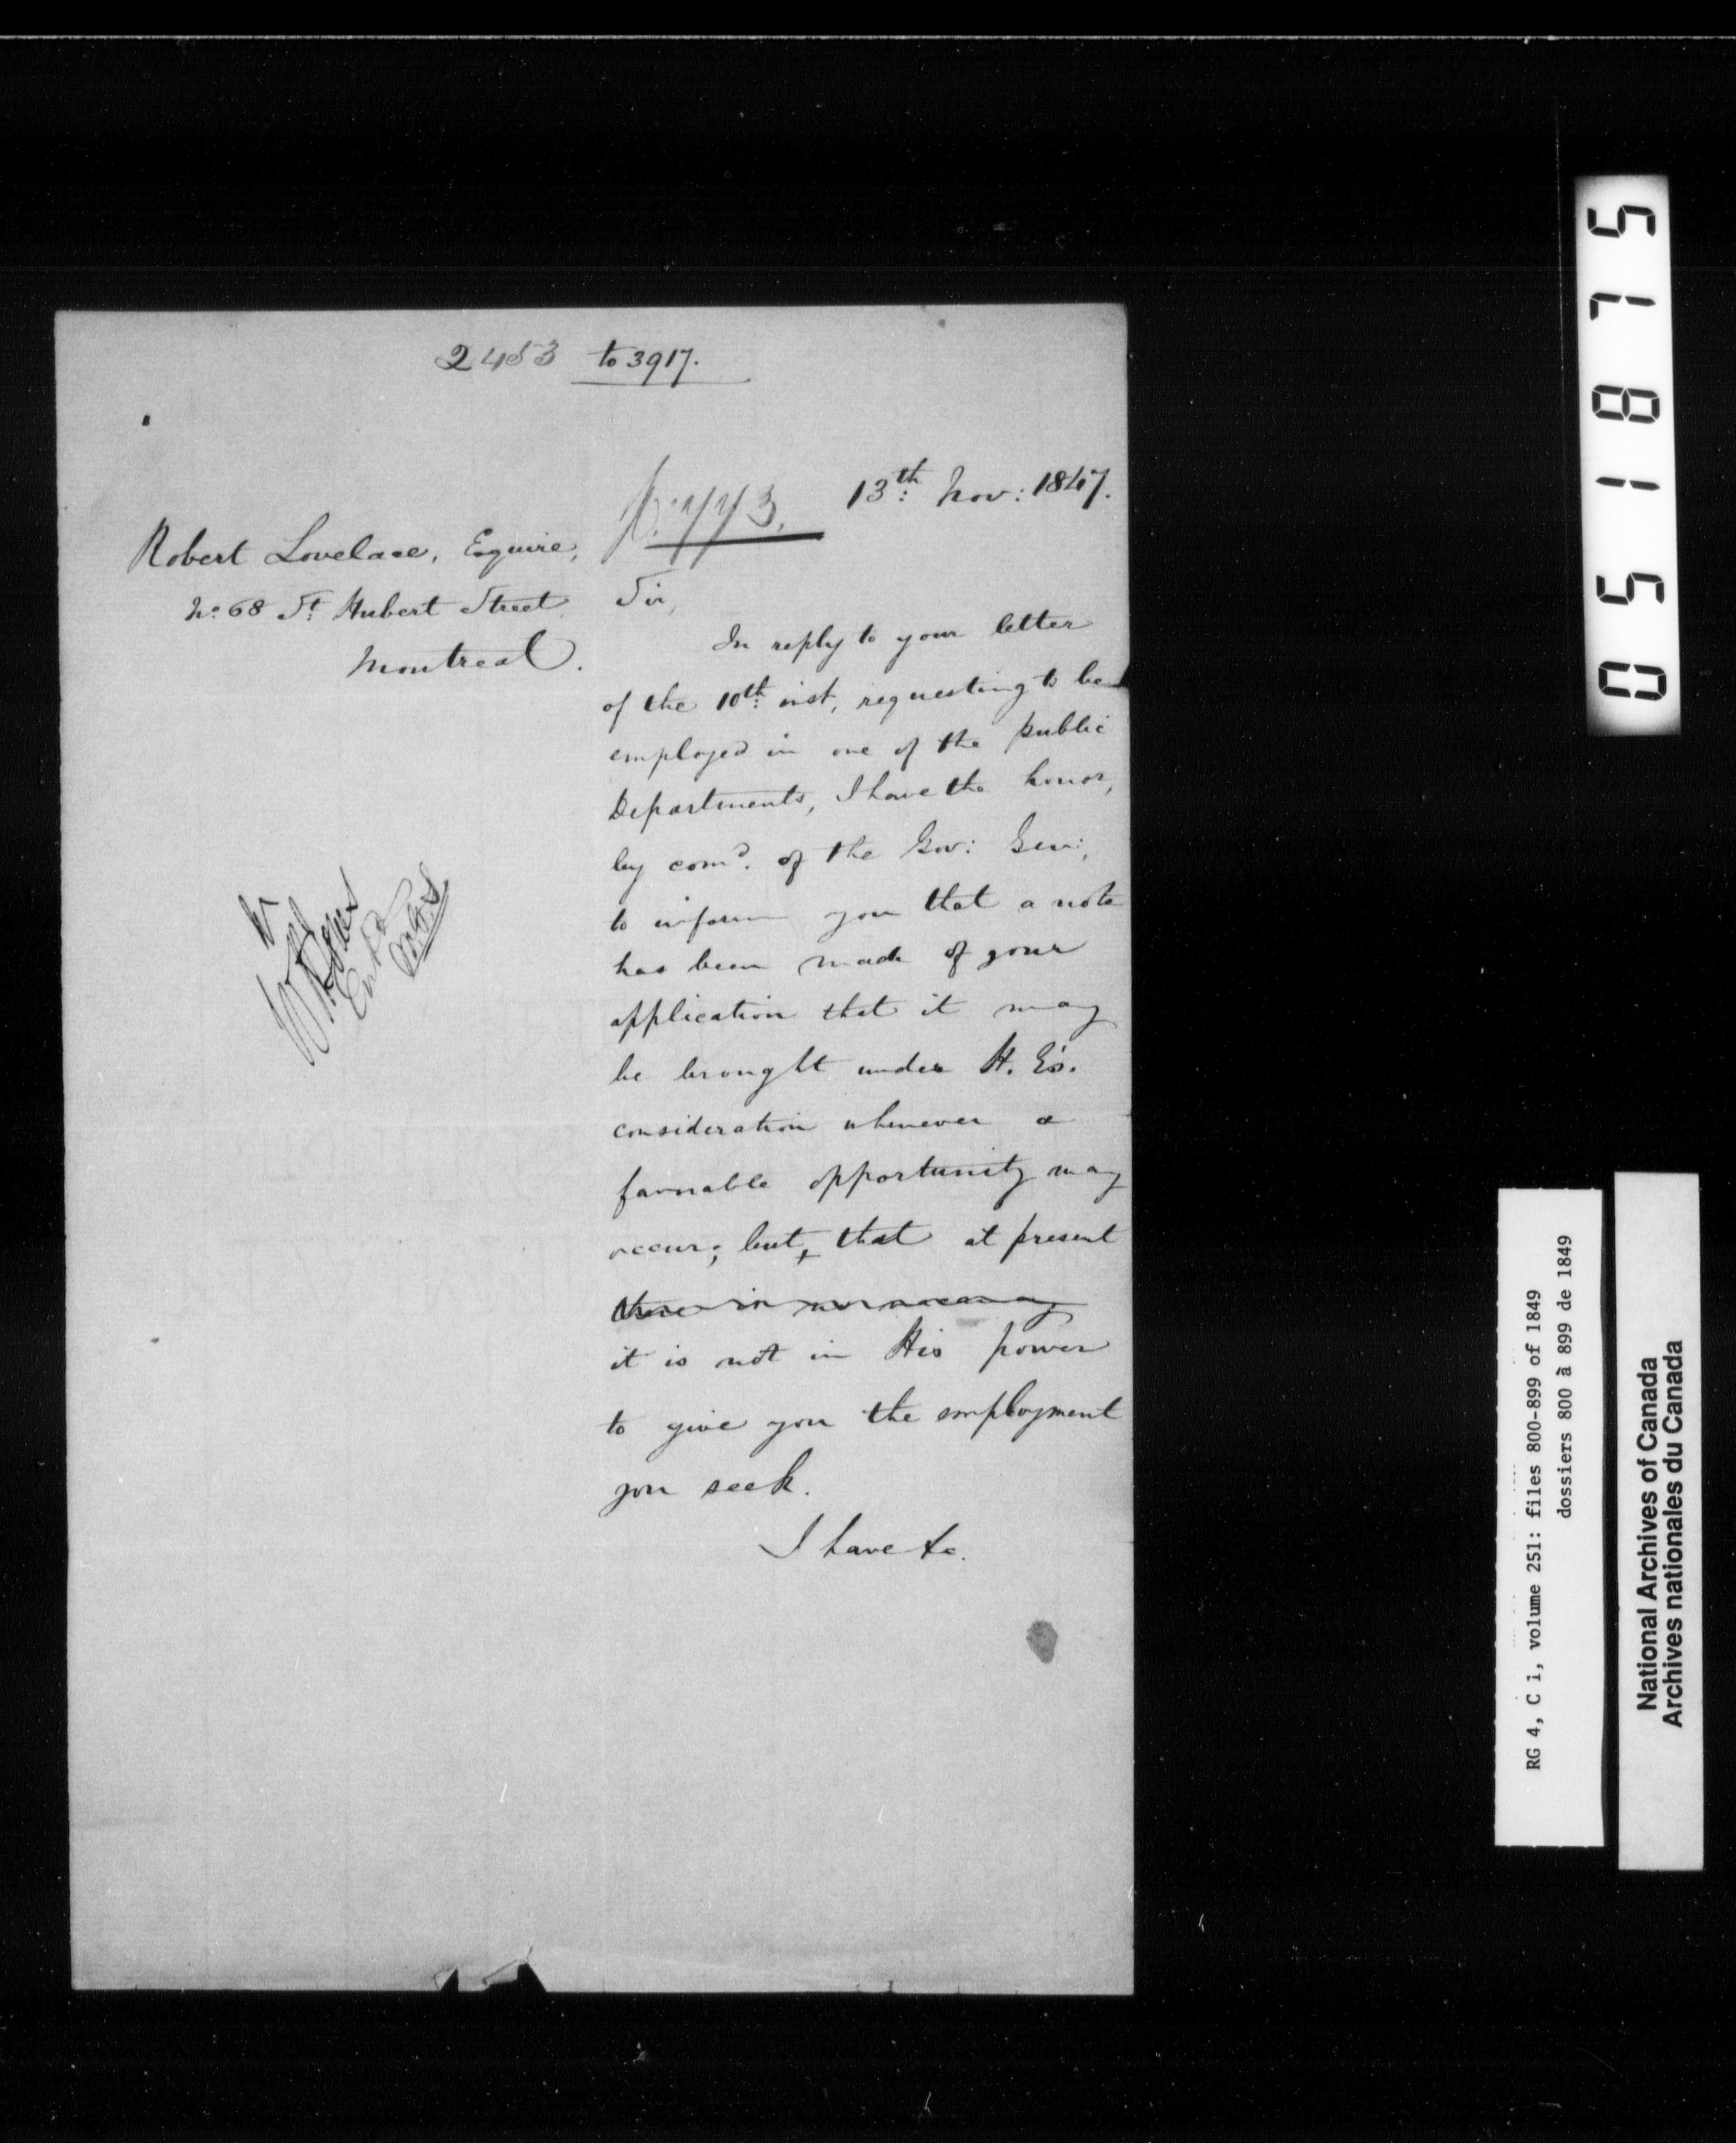 2453 to 3917.
13th: Nov: 1847.
Robert Lovelace, Esquire,
No: 68 St Hubert Street
Montreal.
Sir,
In reply to your letter
of the 10th: inst, requesting to be
employed in one of the public
Departments, I have the honor,
by comd. of the Gov: Gen:,
to inform you that a note
has been made of your
application that it may
be brought under H. E's.
consideration whenever a
favorable opportunity may
occur; but, that at present
there is no vacancy
it is not in His power
to give you the employment
you seek.
I have &c.
051875
RG 4, C i, volume 251: files 800-899 of 1849
dossiers 800 à 899 de 1849
National Archives of Canada
Archives nationales du Canada